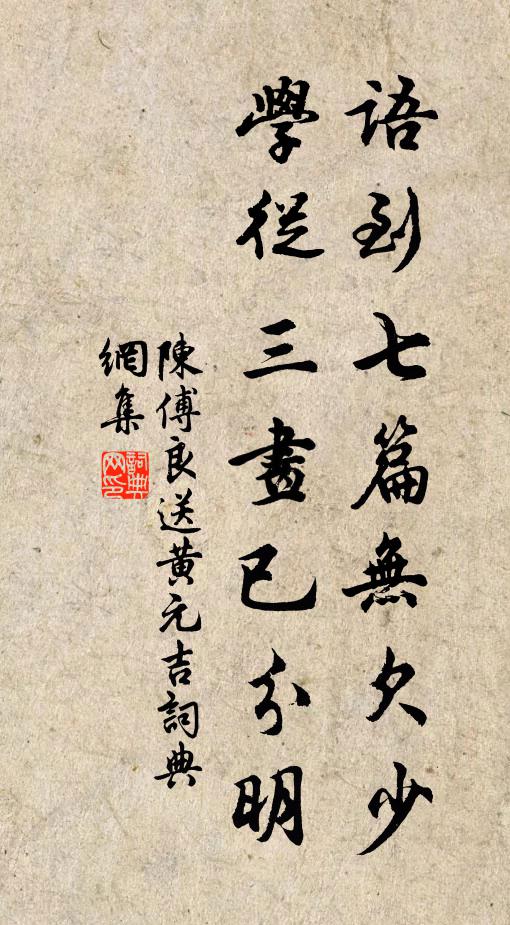 語到七篇無欠少
學從三畫已分明
陳傅良送黄元吉詞典
網集
詞典網印